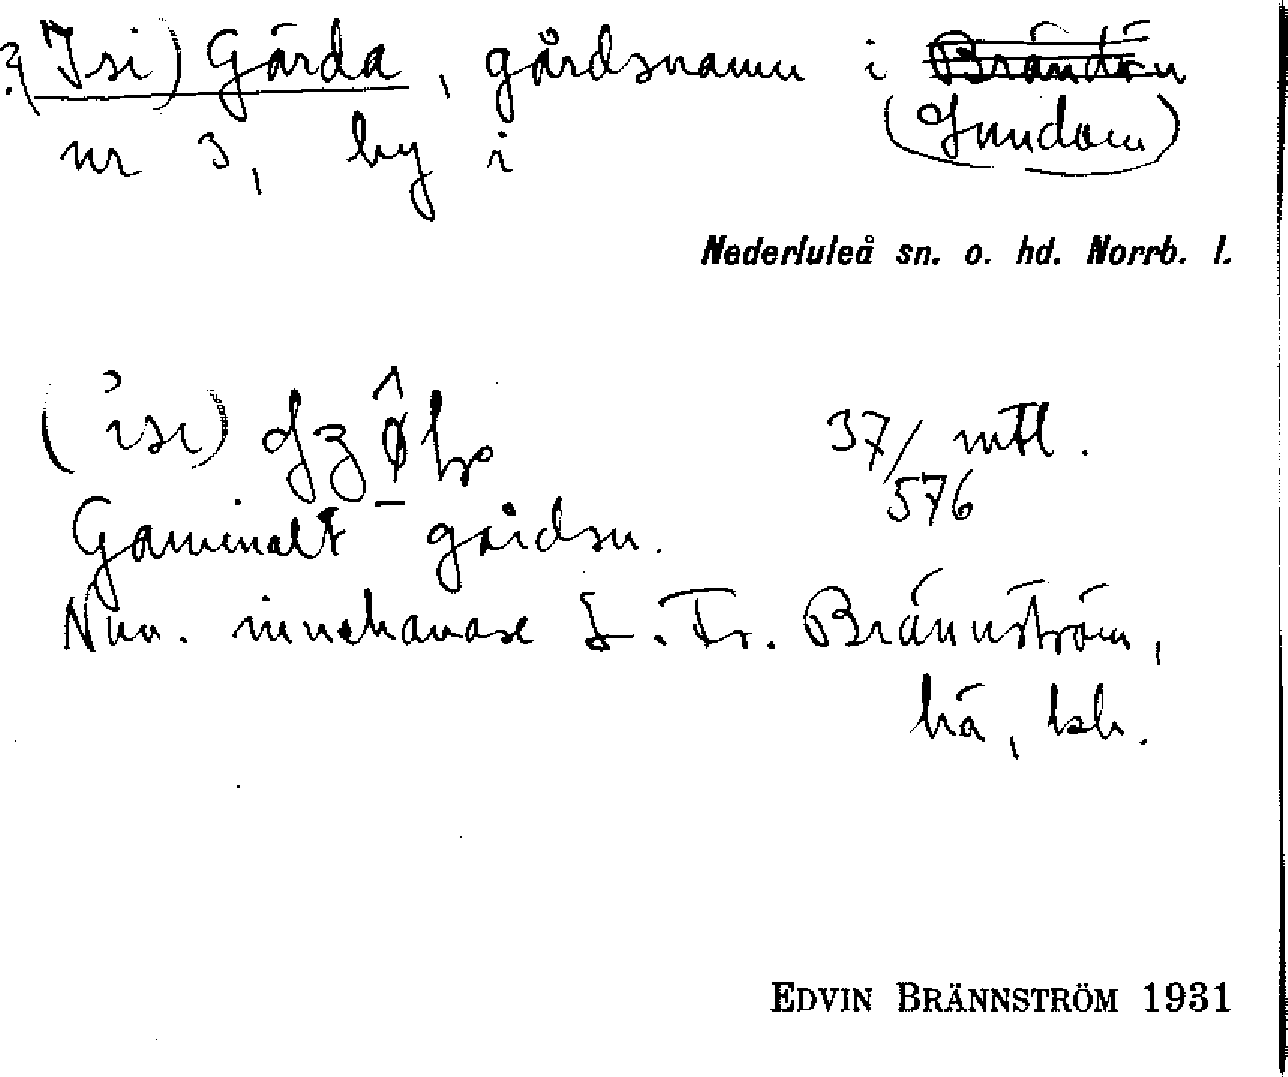 ?(Isi) Gärda, gårdsnamn i Brändön
(Gundom)
nr 3, by i
Nederluleå sn. o. hd. Norrb. l.
(isi)
37/576 mtl.
Gammalt gårdsn.
Nuv. innehavare L. Fr. Brännström,
hä, bsb.
EDVIN BRÄNNSTRÖM 1931